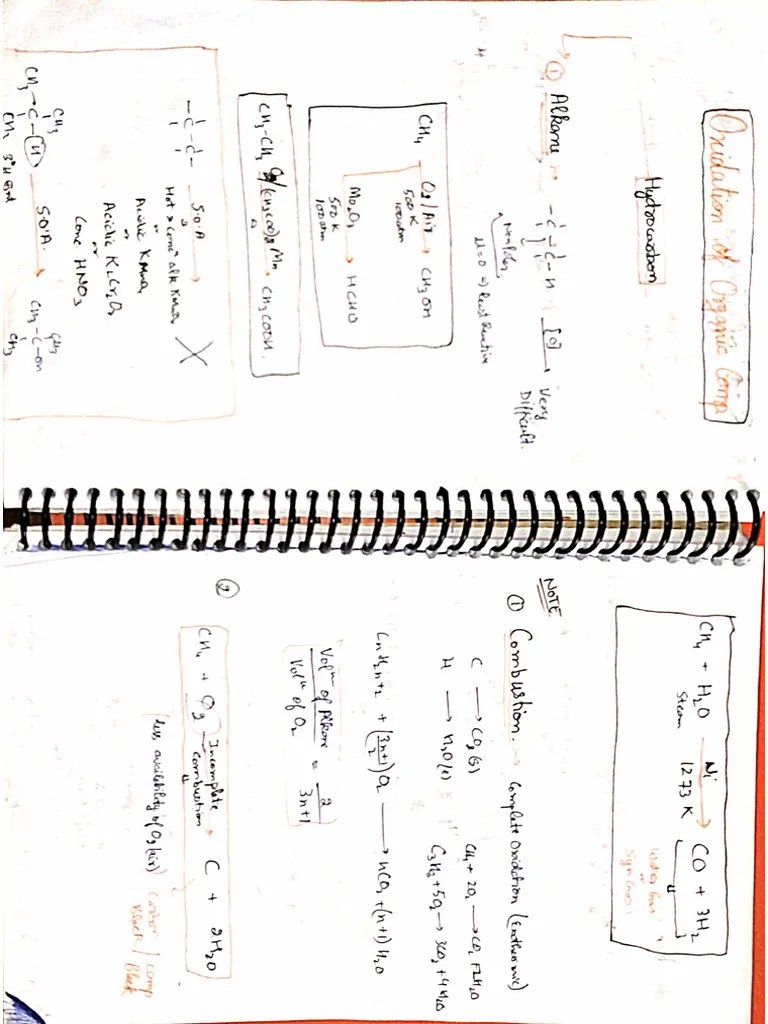 Oxidation of Organic Comp
Hydrocarbon
① Alkane → -C-C-H [O] → Very Difficult.
Nonpolar
μ=0 => least Reactive
CH4 O2/Air → CH3OH
500 K
100 atm
Mo2O3 → HCHO
500 K
100 atm
CH3-CH3 O2/(CH3COO)2Mn → CH3COOH.
Δ
-C-C- S.O.A →
Hot & Conc" alk KMnO4
or
Acidic KMnO4
or
Acidic K2Cr2O7
or
Conc HNO3
CH3
CH3-C-H S.O.A. → CH3-C-OH
CH3
CH3
CH3
CH4 + H2O Ni → CO + 3H2
Steam 1273 K
Water Gas
or
Syn Gas
NOTE
① Combustion. → Complete Oxidation (Exothermic)
C → CO2(g) CH4 + 2O2 → CO2 + 2H2O
H → H2O(l) C3H8 + 5O2 → 3CO2 + 4H2O
CnH2n+2 + (3n+1/2)O2 → nCO2 + (n+1)H2O
Volm of Alkane = 2
Volm of O2 3n+1
②
CH4 + O2 Incomplete combustion → C + 2H2O
(less availability of O2(air)) Carbon Black / Lamp Black